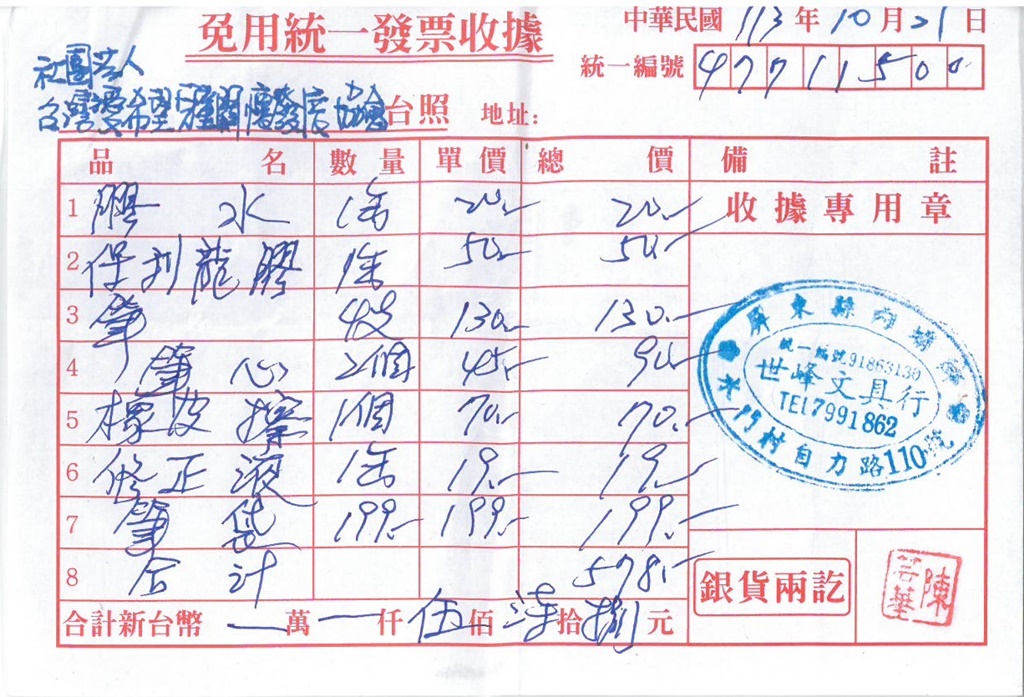 免用統一發票收據
中華民國 113 年 10 月 21 日
統一編號 47711500
社團法人
台灣 希望 協會 台照 地址:
品名 數量 單價 總價 備註
1 膠水 1缶 20.- 20.-
收據專用章
2 保利龍膠 1缶 50.- 50.-
3 筆 130.- 130.-
4 筆心 2個 45.- 90.-
5 橡皮擦 1個 70.- 70.-
6 修正液 1缶 19.- 19.-
7 筆袋 199.- 199.- 199.-
8 合計 578.-
合計新台幣 一 萬 一 仟 伍 佰 柒 拾 捌 元
屏東縣內埔鄉
統一編號91863130
世峰文具行
TEL7991862
水門村自力路110號
銀貨兩訖
陳